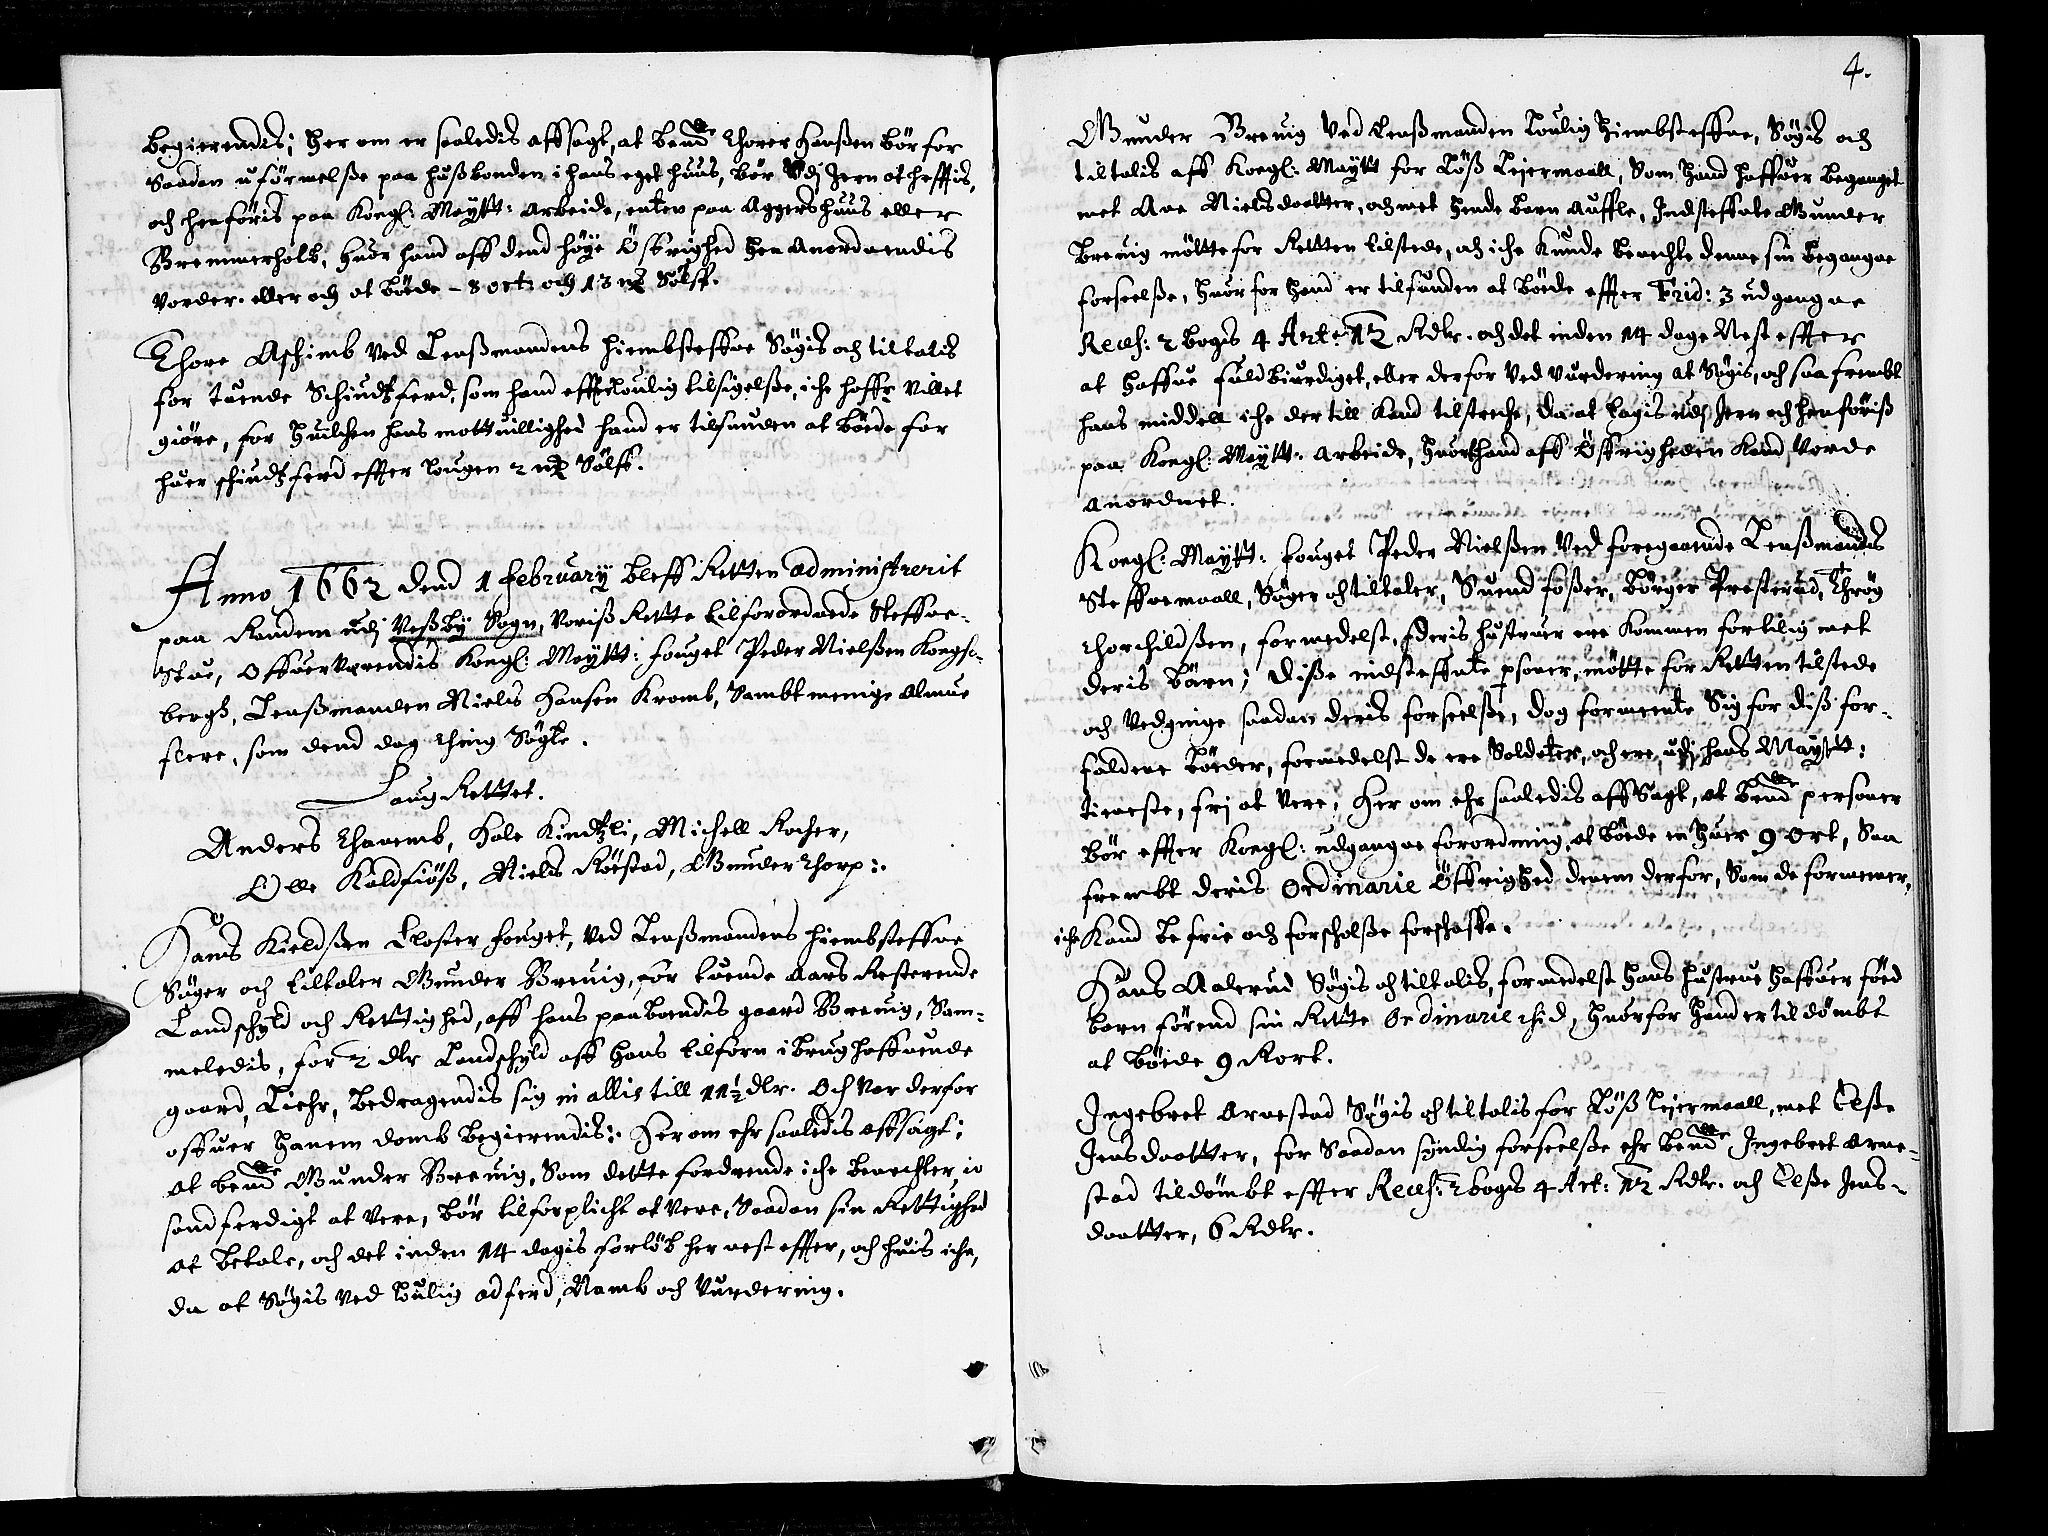 begierendis; Her om er saaledis affsagt, at bemᵗᵉ Thorer Hanßen bör for
Saadan uförmelße paa hußbonden i hans eget huus, bör udj Jern at hefftis,
och henföris paa Kongl: Maÿtt: Arbeide, enten paa Aggershuus eller
Bremmerholb, huor hand aff dend höÿe Öfrighed hen anordnendis
vorder. eller och at böde – 8 ort: och 13 mk Sölff.
Thore Aschimb Ved Lenßmandens hiembsteffne Sögis och tiltalis
for tuende Schiudtzferd, som hand effter loulig tilsigelße, iche haffr villet
giöre, for huilchen hans mottvillighed hand er tilfunden at böde for
huer schiudtzferd effter Lougen 2 mk Sölff.
Anno 1662 dend 1 februarÿ bleff Retten administrerit
paa Randem udj Veßbÿ Sogn, Voriß Rette tilforordnede Steffne-
Stue, offuerverendis Kongl: Maÿtt: fouget Peder Nielßen Kongs-
bergh, Lenßmanden Niels Hansen Kromb, Sambt menige almue
flere, som dend dag thing Sögte.
Laug Rettet.
Anders Thanemb, Hale Kindtzli, Michell Rocher,
Olle Kaldfiöß, Niels Röestad, Gunder Thorp:.
Hans Kieldßen Closter fouget, ved Lenßmandens hiembsteffne
Söger och tiltaler Gunder Breuig, for tuende Aars Resterende
Landschÿld och Rettighed, aff hans paaboendis gaard Breuig, Sam-
meledis, for 2 dlr Landschÿld aff hans tilforn i brug haffuende
gaard, Liehr, bedragendis sig in allis till 11½ dlr. Och Var derfor
offuer hanem domb begierendis:. Her om ehr saaledis affsagt;
at bemᵗᵉ Gunder Breuig, Som dette fordrende iche benechter, io
sandferdigt at vere, bör tilforplicht at vere, Saadan sin Rettighed
at betale, och det inden 14 dagis forlöb her nest effter, och huis iche,
da at Sögis ved loulig adferd, Namb och vurdering.
4.
Gunder Breuig ved Lenßmanden loulig hiembsteffne, Sögis och
tiltalis aff Kongl: Maÿtt for Löß Leiermaall, Som hand haffuer beganget
met Ane Nielsdaatter, och met hende barn aufflet, Indsteffnte Gunder
Breuig mötte for Retten tilstede, och iche kunde benechte denne sin begangne
forseelße, huor for hand er tilfunden at böde effter Frid: 3 udgangne
Recess: 2 bogis 4 Art: 12 Rdlr. och det inden 14 dage Nest effter
at haffue fuldbiurdiget, eller derfor ved vurdering at Söges, och saa frembt
hans middell iche der till kand tilstreche, da at tagis udj Jern och henföriß
paa Kongl: Maÿtt: Arbeide, huorthand aff Öfrigheden kand vorde
anordnet.
Kongl: Maÿtt: fouget Peder Nielßen ved foregaaende Lenßmands
Steffnemaall, Söger och tiltaler, Suend foßer, börger Presterud, Thrög
Thorchildßen, formedelst, deris hustruer ere kommen fortilig met
deris börn; disse indsteffnte psoner, mötte for Retten tilstede
och vedginge saadan deris forseelße, dog formeente Sig for diß for-
faldene böeder, formedelst de ere Soldater, och ere udj hans Maÿtt:
tieneste, frj at vere, Her om ehr saaledis affsagt, at bemᵗᵉ personer
bör effter Kongl: udgangne forordning, at böde en huer 9 Ort, Saa
frembt deris ordinarie Öffrighed denem derfor, som de formener,
iche kand befrie och forschaffe.
Hans Aalerud Söges och tiltalis, formedelst hans hustrue haffuer föed
barn förend sin Rette Ordinarie thid, huorfor hand er tildömbt
at böde 9 Rort.
Ingebret Arnestad Söges och tiltalis for Löß leiermaall, met Elße
Jensdaatter, for Saadan syndig forseelße ehr bemᵗᵉ Ingebret Arne-
stad tildömbt effter Recess: 2 bogis 4 Art: 12 Rdlr. och Elße Jens-
daatter, 6 Rdlr.